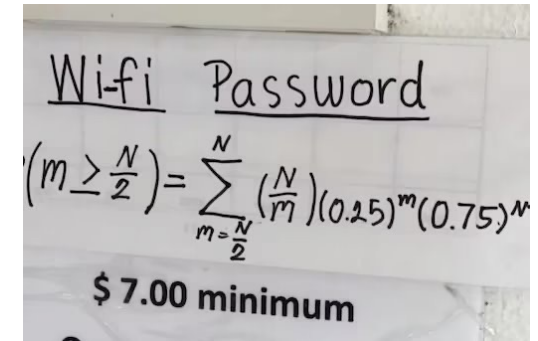 Wi-fi Password
(m ≥ N/2) = ∑_{m=N/2}^{N} (N/m)(0.25)^m(0.75)^N
$7.00 minimum